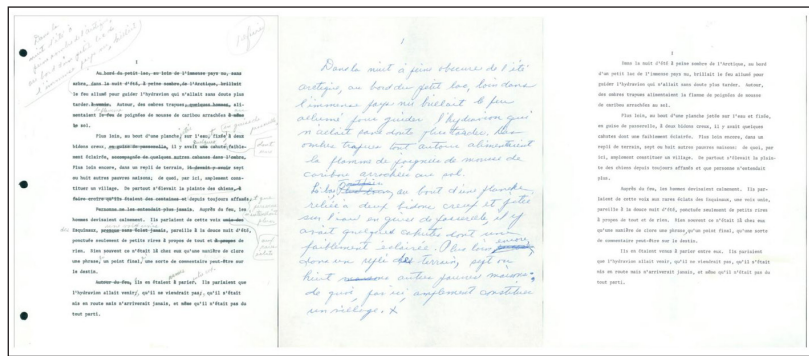 Dans la
nuit d'été à
1
Au bord du petit lac, au loin de l'immense pays nu, sans
arbre, dans la nuit d'été, à peine sombre de l'Arctique, brillait
le feu allumé pour guider l'hydravion qui n'allait sans doute plus
tarder. Autour, des ombres trapues, quelques hommes, ali-
mentaient le feu de poignées de mousse de caribou arrachées à même
le sol.
Plus loin, au bord d'une planche, sur l'eau, fixée à deux
bidons creux, en guise de passerelle, il y avait une cabute faible-
ment éclairée, accompagnée de quelques autres cabutes dans l'ombre.
Plus loin encore, dans un repli de terrain, sept
ou huit pauvres maisons: de quoi, par ici, amplement cons-
tituer un village. De partout s'élevait la plainte des chiens, à
faire croire qu'ils étaient des centaines et depuis toujours affamés,
Personne ne les entendait plus jamais. Auprès du feu, les
hommes devisaient calmement. Ils parlaient de cette voix des
Esquimaux, presque sans éclat jamais, pareille à la douce nuit d'été,
ponctuée seulement de petits rires à propos de tout et de
rien. Rien souvent ce n'était là chez eux qu'une manière de clore
une phrase, un point final, une sorte de commentaire peut-être sur
le destin.
Autour du feu, ils en étaient à parier. Ils pariaient que
l'hydravion allait venir, qu'il ne viendrait pas, qu'il s'était
mis en route mais n'arriverait jamais, et même qu'il n'était pas du
tout parti.
1
Dans la nuit à peine obscure de l'été
arctique, au bord du petit lac, loin dans
l'immense pays nu brillait le feu
allumé pour guider l'hydravion qui
n'allait sans doute plus tarder. Des
ombres trapues tout autour alimentaient
la flamme de poignées de mousse de
caribou arrachées au sol.
au bout d'une planche
reliée à deux bidons creux et jetée
sur l'eau en guise de passerelle, il y
avait quelques cahutes dont une
faiblement éclairée. Plus loin encore,
dans un repli de terrain, sept ou
huit autres pauvres maisons:
de quoi, par ici, amplement constituer
un village. x
1
Dans la nuit d'été à peine sombre de l'Arctique, au bord
d'un petit lac, loin dans l'immense pays nu, brillait le feu allumé pour
guider l'hydravion qui n'allait sans doute plus tarder. Autour,
des ombres trapues alimentaient la flamme de poignées de mousse
de caribou arrachées au sol.
Plus loin, au bord d'une planche jetée sur l'eau et fixée,
en guise de passerelle, à deux bidons creux, il y avait quelques
cabutes dont une faiblement éclairée. Plus loin encore, dans un
repli de terrain, sept ou huit autres pauvres maisons: de quoi, par
ici, amplement constituer un village. De partout s'élevait la plain-
te des chiens depuis toujours affamés et que personne n'entendait
plus.
Auprès du feu, les hommes devisaient calmement. Ils par-
laient de cette voix aux rares éclats des Esquimaux, une voix unie,
pareille à la douce nuit d'été, ponctuée seulement de petits rires
à propos de tout et de rien. Rien souvent ce n'était là chez eux
qu'une manière de clore une phrase, qu'un point final, qu'une sorte
de commentaire peut-être sur le destin.
Ils en étaient à parier entre eux. Ils pariaient
que l'hydravion allait venir, qu'il ne viendrait pas, qu'il s'était
mis en route mais n'arriverait jamais, et même qu'il n'était pas du
tout parti.